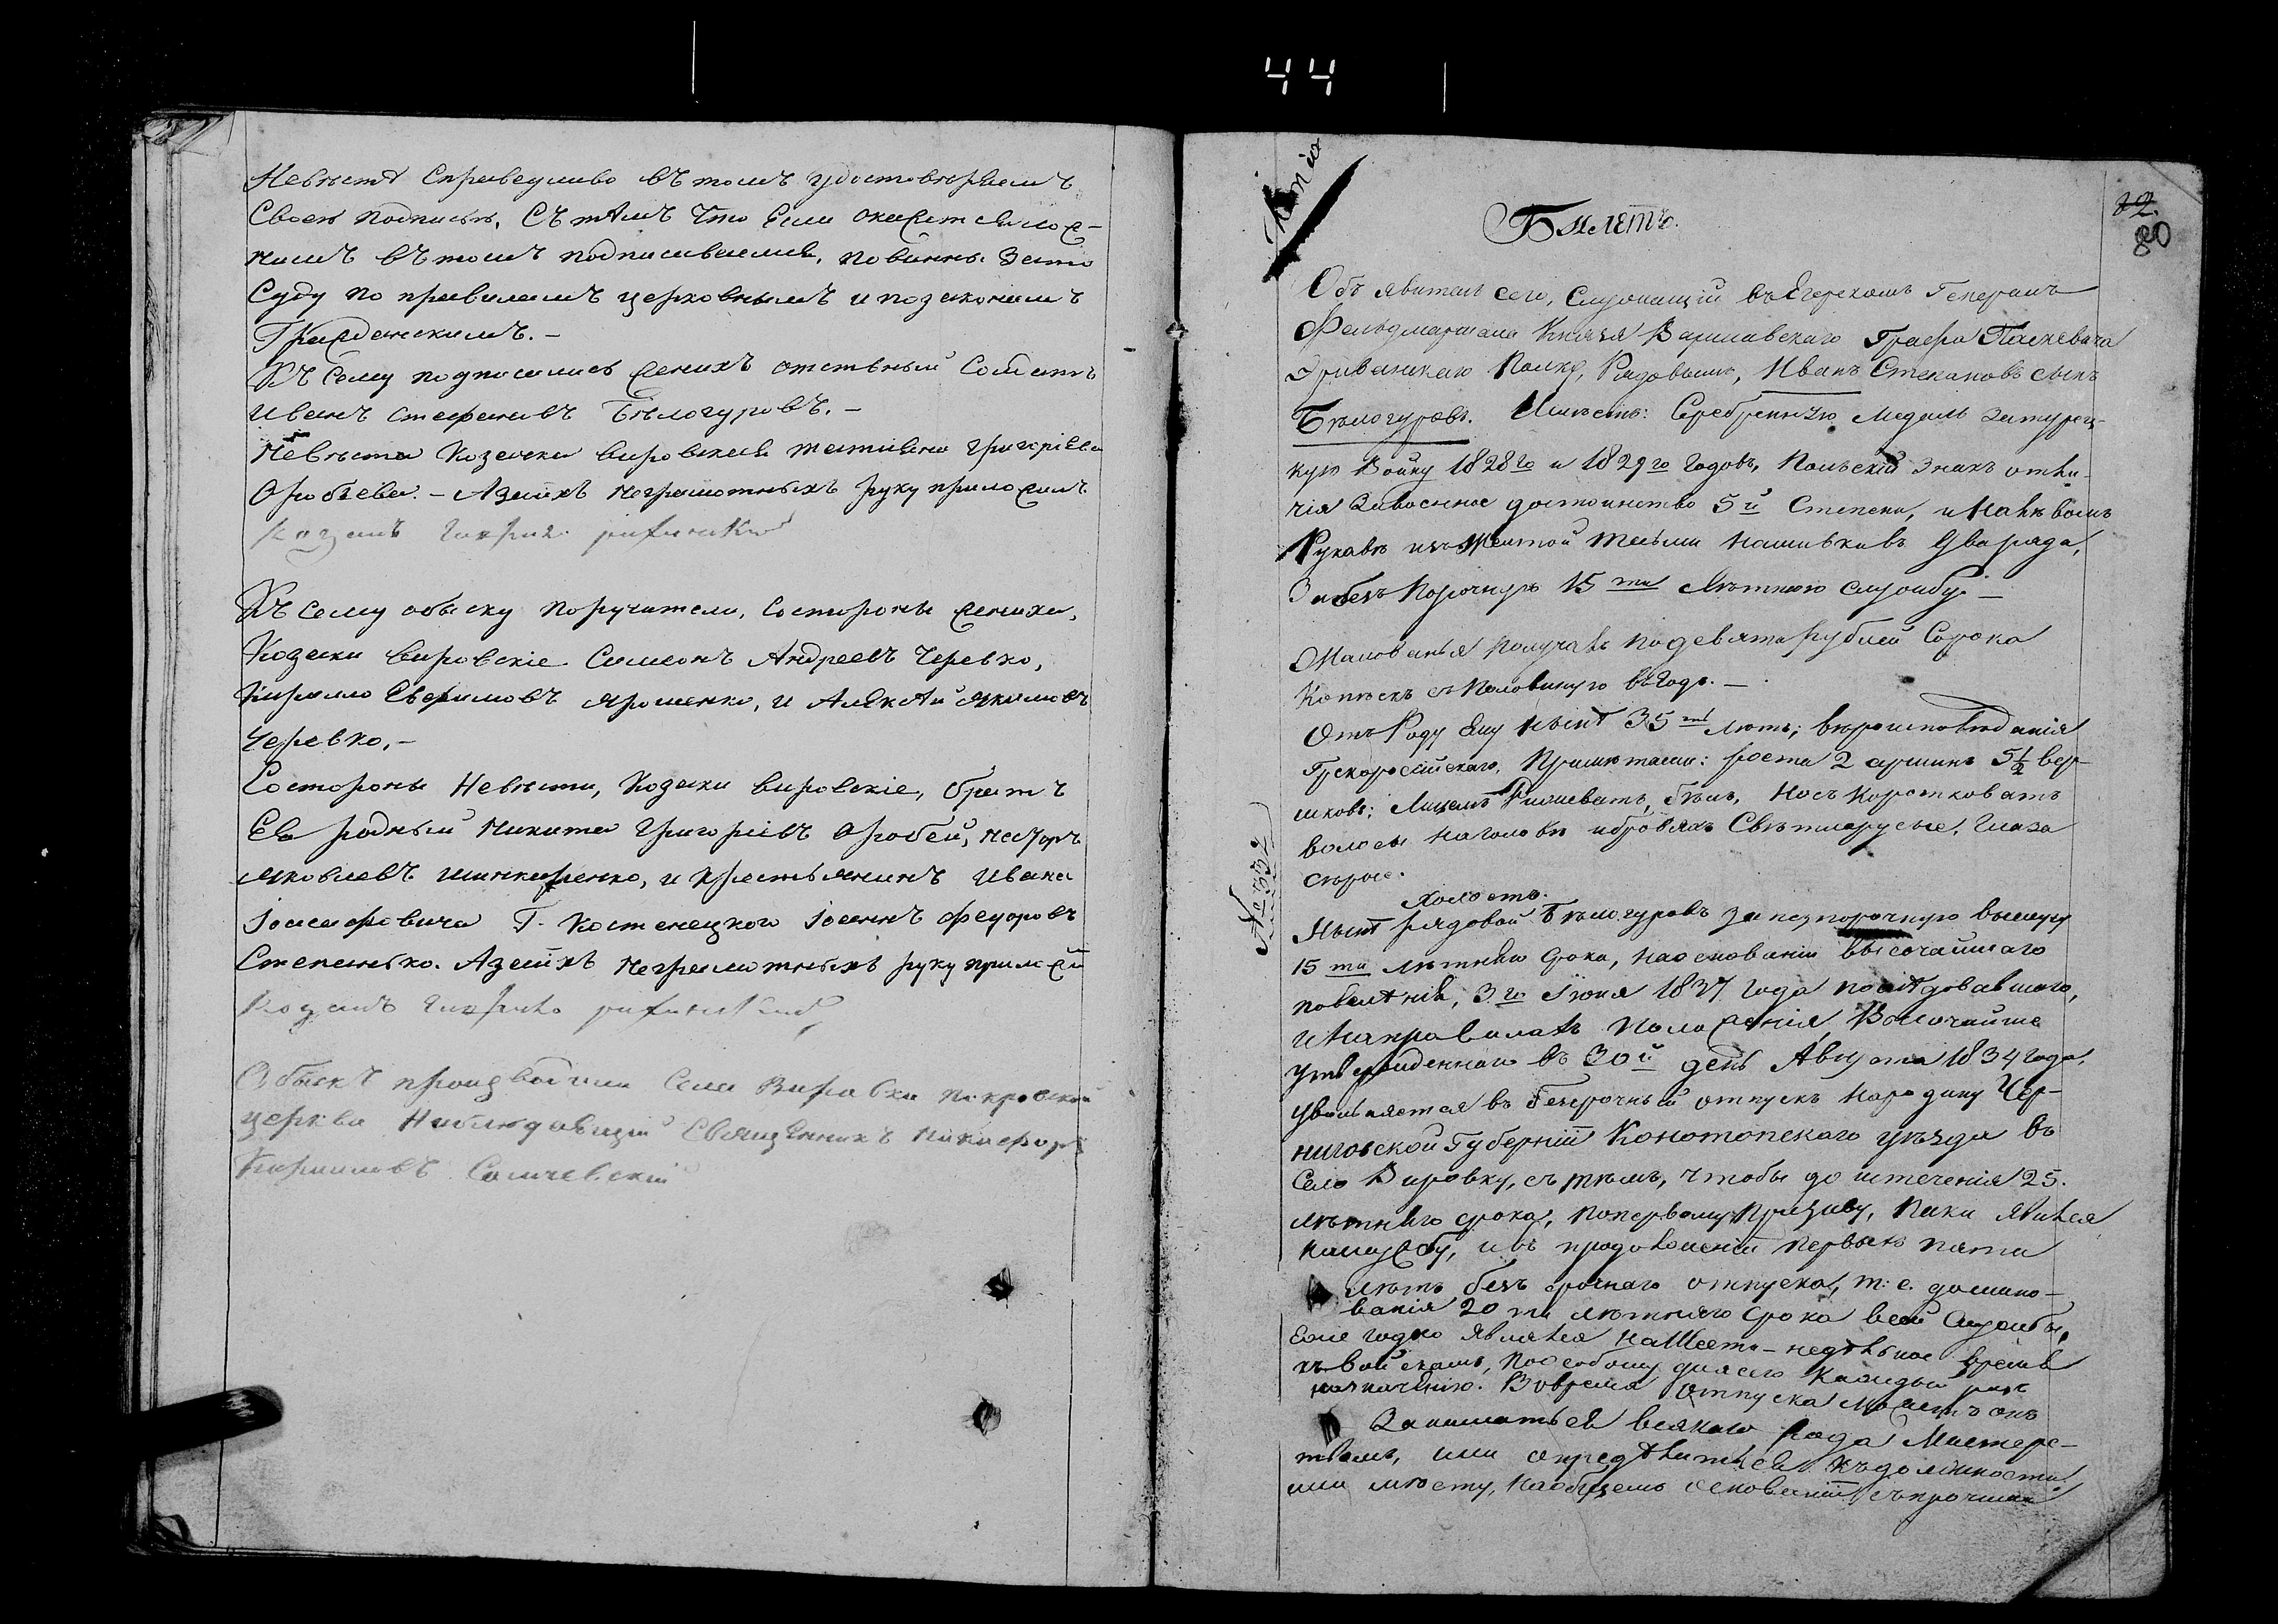 44
Невѣстѣ Справедливо въ томъ удостовѣряемъ
Своею подписью, Съ тѣмъ Что Если окажется лож-
нымъ въ томъ подписываемся, повинны Зато
Суду по правиламъ церковнымъ и позаконамъ
Гражданскимъ. –
Къ Сему подписались женихъ отставный Солдатъ
Иванъ Стефановъ Бѣлогуровъ. –
Невѣста Козачка вировская татіяна григоріева
Оробьева. – Азаихъ неграмотныхъ руку приложилъ
Козакъ
Къ Сему обыску поручители, Состороны жениха,
Козаки вировскіе Симеонъ Андреевъ Черевко,
Кирилло Евфимовъ Ярошенко, и Алексѣй Якимовъ
Черевко. –
Состороны Невѣсты, Козаки вировскіе, братъ
Ея родный Никита Григоріевъ Оробей, Несторъ
Яковлевъ шинкаренко, и крестьянинъ Ивана
Іосифовича Г. Костенецкого Іоаннъ Федоровъ
Степанько. Азаихъ неграмотныхъ руку прилож
Козакъ
Обыскъ производили Села Вировки покровской
церкви Наблюдающій Священникъ Никифоръ
Кирилловъ
Копія
82.
80
Билетъ.
Объявитель сего, Служащій въ Егерскомъ Генералъ
Фельдмаршала Князя Варшавскаго Графа Паскевича
Эриванскаго Полку, Рядовымъ, Иванъ Степановъ сынъ
Бѣлогуровъ. Имѣетъ: Серебрянную Медаль Затурец-
кую Войну 1828го и 1829го Годовъ, Польскій Знакъ отли-
чія Завоенное достоинство 5й Степени, и на лѣвомъ
Рукавѣ изъ Желтой тесьмы нашивки въ два ряда,
За безъ Порочную 15ти Лѣтнюю службу –
Жалованья Получалъ по девяти рублей Сорока
Копѣекъ съ Половиною въ Годъ. –
Отъ Роду Ему нынѣ 35ть лѣтъ; вѣроисповѣданія
Грекоросійскаго, Примѣтами: роста 2 аршинъ 5½ вер-
шковъ; Лицемъ Рябоватъ, бѣлъ, Носъ Коротковатъ
волосы на голове и бровяхъ Свѣтлорусые, Глаза
серые. Холостъ.
№ 532
Нынѣ рядовой Бѣлогуровъ за безпорочную выслугу
15ти лѣтняго Срока, на основаніи высочайшаго
повелѣнія, 3го Іюня 1837 года послѣдовавшаго,
и на правилахъ Положенія Высочайше
утвержденнаго въ 30й день Августа 1834 года,
увольняется въ безсрочный отпускъ на родину Чер-
ниговской Губерніи Конотопскаго уѣзда въ
Село Вировку, съ тѣмъ, чтобы до истеченія 25.
лѣтняго срока, по первому Призыву, Паки явился
на службу, и въ продолженіи первыхъ пяти
лѣтъ безъ срочнаго отпуска, т: е. до мино-
ванія 20ти лѣтняго Срока всей Службы,
Ежегодно Являлся на Шести-недѣльное время
къ войскамъ, по особому для сего каждый разъ
назначенію. Вовремя отпуска можетъ онъ
Заниматься всякаго рода Мастерс-
твомъ, или опредѣлиться къ должности
или мѣсту, на общемъ основаніи съ прочими